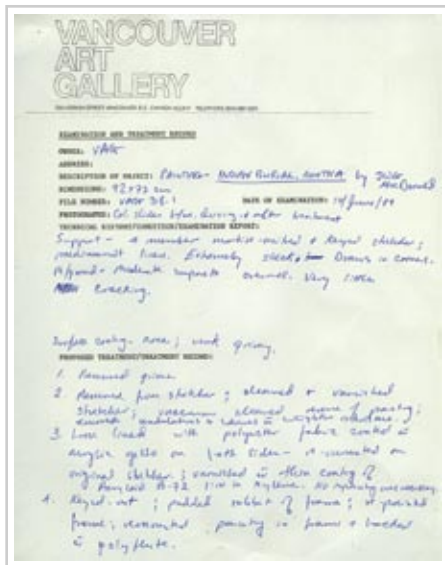 VANCOUVER
ART
GALLERY
EXAMINATION AND TREATMENT RECORD
OWNER: VAG
ADDRESS:
DESCRIPTION OF OBJECT: Painting - INDIAN BURIAL, NOOTKA by Jock MacDonald
DIMENSIONS: 92x72 cm
FILE NUMBER: VAG 38.1 DATE OF EXAMINATION: 14/June/84
PHOTOGRAPHS: Col. slides before, during & after treatment
TECHNICAL HISTORY/CONDITION/EXAMINATION REPORT:
Support - 4 member mortise mitred & keyed stretcher;
mediumweight linen. Extremely slack. Draws in corners.
Moderate impasto overall. Very little
cracking.
Surface coating - None; grimy.
PROPOSED TREATMENT/TREATMENT RECORD:
1. Removed grime
2. Removed from stretcher; cleaned & varnished
stretcher; vacuum cleaned reverse of painting;
3. Loose lined with polyester fabric coated
on both sides - re-mounted on
original stretcher; varnished
4. Keyed-out; padded rabbet of frame;
frame; painting in frame & backed